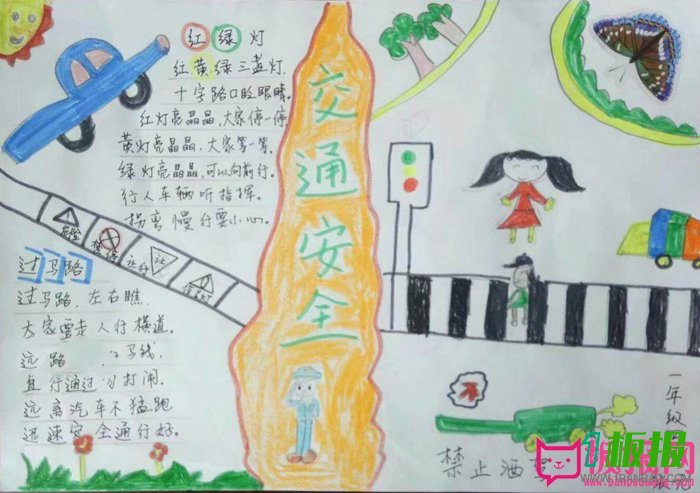 红绿灯
红黄绿三盏灯,
十字路口的眼睛。
红灯亮晶晶,大家停一停
黄灯亮晶晶,大家等一等。
绿灯亮晶晶,可以向前行。
行人车辆听指挥。
拐弯慢行要小心。
交通安全
危险
禁停
过马路
过马路,左右瞧
大家要走人行横道。
远路
马线,
直行通过 打闹。
远离汽车不猛跑
迅速安全通行好。
不
禁止洒
一年级
板报网